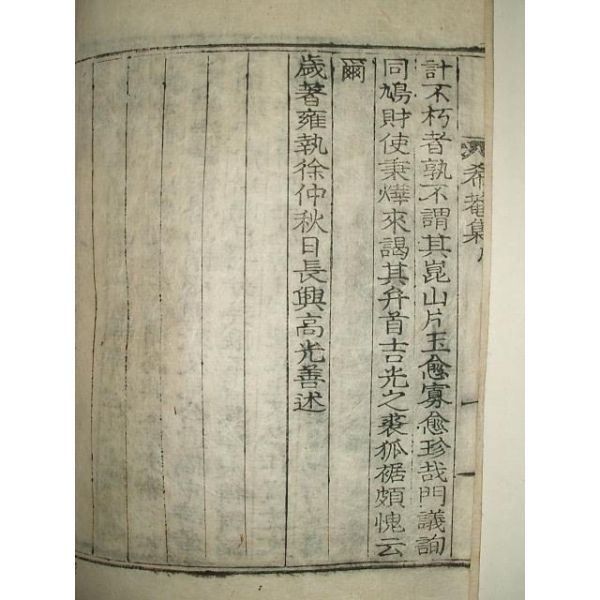 希菴集
計不朽者孰不謂其崑山片玉愈寡愈珍哉門議詢
同鳩財使秉燁來謁其弁首吉光之裘狐裾頗愧云
爾
歲著雍執徐仲秋日長興高光善述